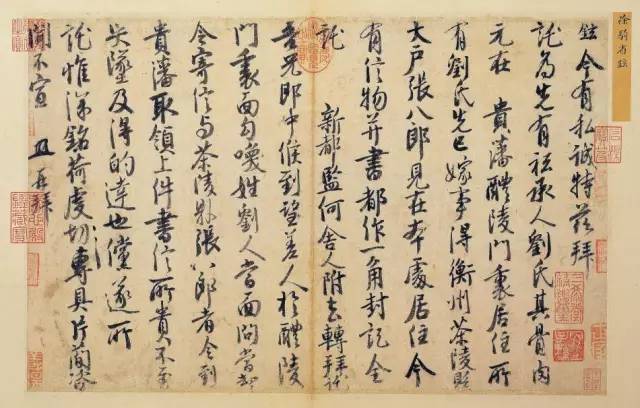 徐騎省鉉
鉉今有私誠特茲拜
託為先有祇承人劉氏其骨肉
元在 貴藩醴陵門裏居住所
有劉氏先已嫁事得衡州茶陵縣
大戶張八郎見在本處居住今
有信物并書都作一角封記全
託 新都監何舍人附去轉拜託
吾兄郎中候到望差人於醴陵
門裏面勾喚姓劉人當面問當却
令寄信与茶陵縣張八郎者令到
貴藩取領上件書信所貴不至
失墜及得的達也儻遂所
託惟深銘荷虔切專具片簡咨
聞不宣 鉉再拜